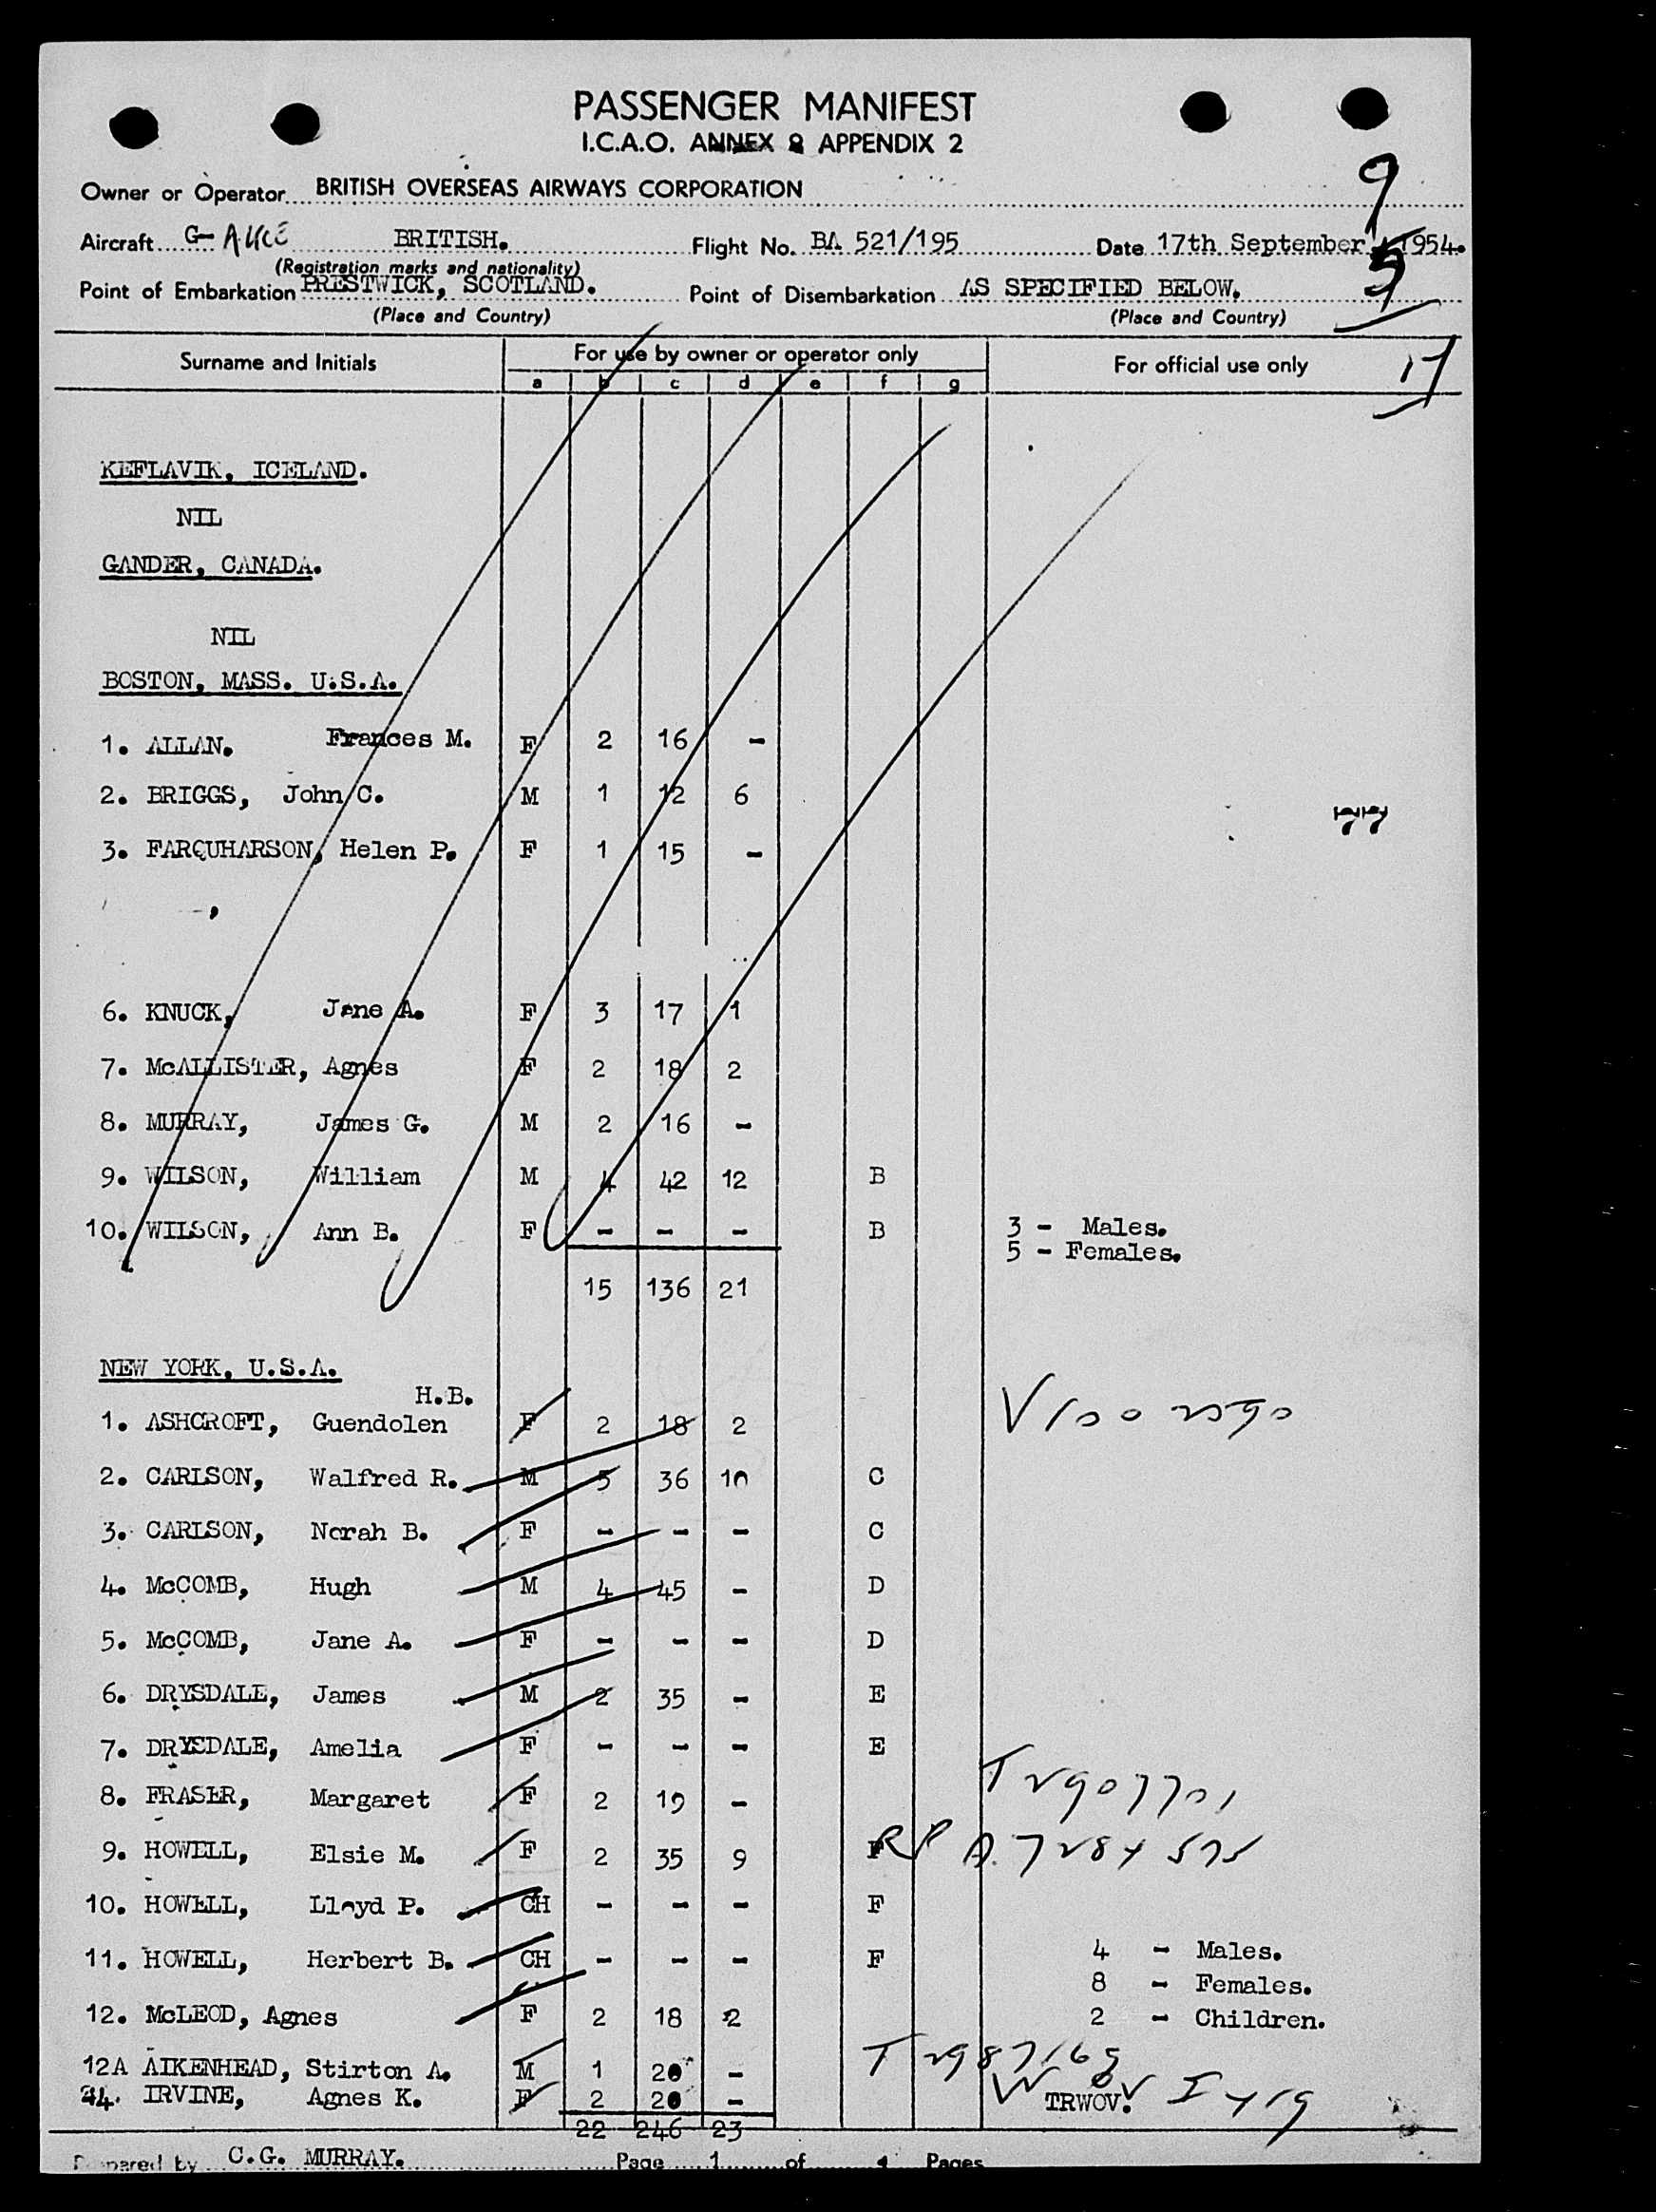 PASSENGER MANIFEST
I.C.A.O. ANNEX 9 APPENDIX 2
9
Owner or Operator BRITISH OVERSEAS AIRWAYS CORPORATION
Aircraft G- BRITISH. Flight No. BA 521/195 Date 17th September, 1954.
(Registration marks and nationality)
Point of Embarkation PRESTWICK, SCOTLAND. Point of Disembarkation AS SPECIFIED BELOW.
(Place and Country) (Place and Country)
Surname and Initials For use by owner or operator only For official use only 17
a b c d e f g
KEFLAVIK, ICELAND.
NIL
GANDER, CANADA.
NIL
BOSTON, MASS. U.S.A.
1. ALLAN. Frances M. F 2 16 -
2. BRIGGS, John C. M 1 12 6
77
3. FARQUHARSON, Helen P. F 1 15 -
6. KNUCK, Jane A. F 3 17 1
7. McALLISTER, Agnes F 2 18 2
8. MURRAY, James G. M 2 16 -
9. WILSON, William M 4 42 12 B
10. WILSON, Ann B. F - - - B 3 - Males.
5 - Females.
15 136 21
NEW YORK, U.S.A.
H.B.
1. ASHCROFT, Guendolen F 2 18 2
2. CARLSON, Walfred R. M 5 36 10 C
3. CARLSON, Norah B. F - - - C
4. McCOMB, Hugh M 4 45 - D
5. McCOMB, Jane A. F - - - D
6. DRYSDALE, James M 2 35 - E
7. DRYSDALE, Amelia F - - - E
8. FRASER, Margaret F 2 19 -
9. HOWELL, Elsie M. F 2 35 9 F
10. HOWELL, Lloyd P. CH - - - F
11. HOWELL, Herbert B. CH - - - F 4 - Males.
8 - Females.
12. McLEOD, Agnes F 2 18 2 2 - Children.
12A AIKENHEAD, Stirton A. M 1 20 -
14. IRVINE, Agnes K. F 2 20 - TRWOV.
22 246 23
Prepared by C.G. MURRAY. Page 1 of 1 Pages